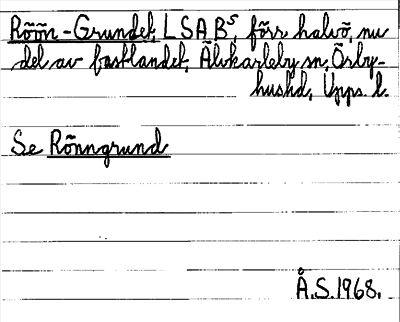 Röön-Grundet, LSABs, förr halvö, nu
del av fastlandet, Älvkarleby sn, Örby-
hus hd, Upps. l.
Se Rönngrund
Å.S. 1968.